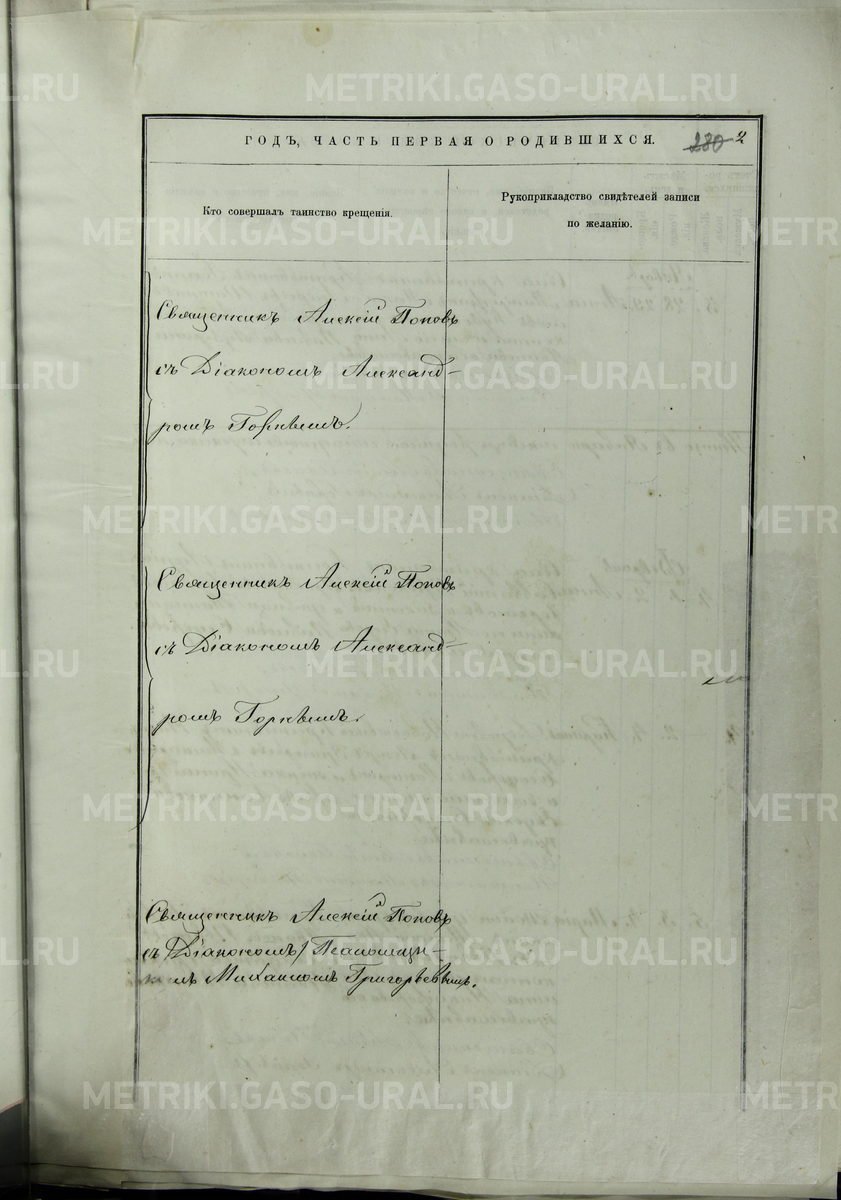 METRIKI.GASO-URAL.RU
ГОДЪ, ЧАСТЬ ПЕРВАЯ О РОДИВШИХСЯ. 280 2
Кто совершалъ таинство крещенія.
Рукоприкладство свидѣтелей записи
по желанію.
Священникъ Алексій Поповъ
съ Діакономъ Александ-
ромъ
Священникъ Алексій Поповъ
съ Діакономъ Александ-
ромъ
Священникъ Алексій Поповъ
съ Діакономъ Псаломщи-
комъ Михаиломъ Григорьевымъ.